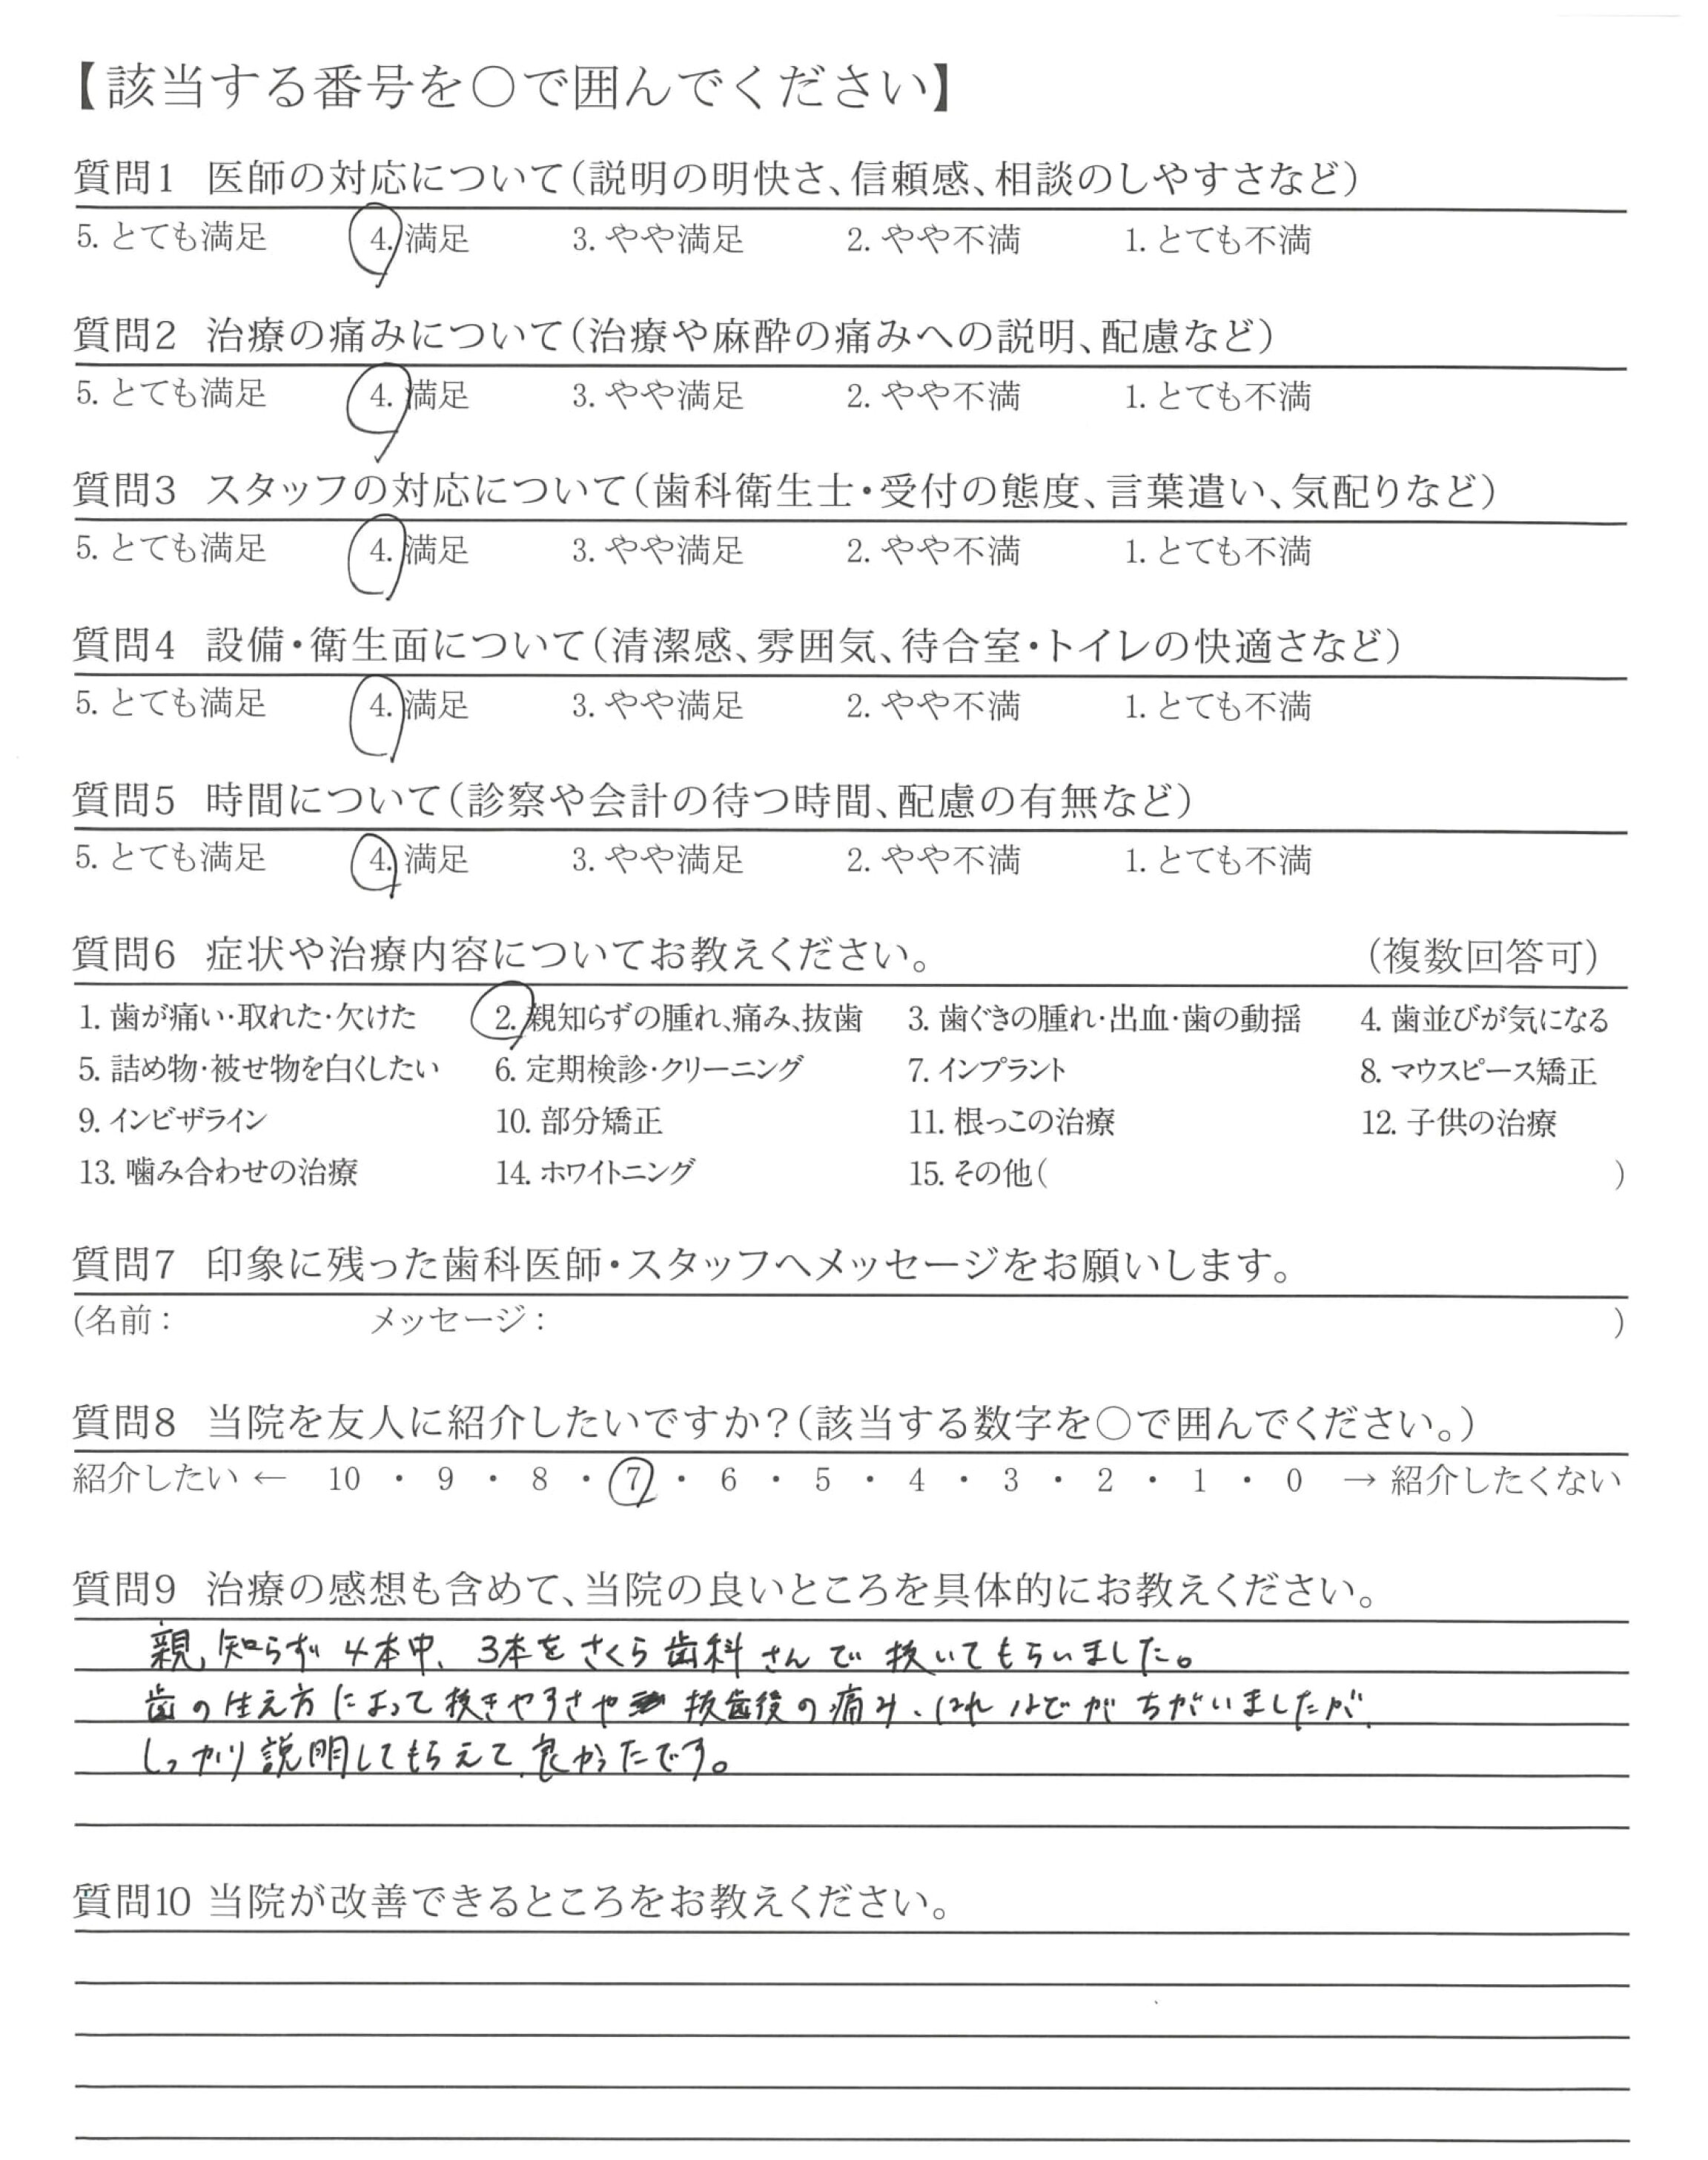 【該当する番号を○で囲んでください】
質問1 医師の対応について(説明の明快さ、信頼感、相談のしやすさなど)
5. とても満足 4. 満足 3. やや満足 2. やや不満 1. とても不満
質問2 治療の痛みについて(治療や麻酔の痛みへの説明、配慮など)
5. とても満足 4. 満足 3. やや満足 2. やや不満 1. とても不満
質問3 スタッフの対応について(歯科衛生士・受付の態度、言葉遣い、気配りなど)
5. とても満足 4. 満足 3. やや満足 2. やや不満 1. とても不満
質問4 設備・衛生面について(清潔感、雰囲気、待合室・トイレの快適さなど)
5. とても満足 4. 満足 3. やや満足 2. やや不満 1. とても不満
質問5 時間について(診察や会計の待つ時間、配慮の有無など)
5. とても満足 4. 満足 3. やや満足 2. やや不満 1. とても不満
質問6 症状や治療内容についてお教えください。 (複数回答可)
1. 歯が痛い・取れた・欠けた 2. 親知らずの腫れ、痛み、抜歯 3. 歯ぐきの腫れ・出血・歯の動揺 4. 歯並びが気になる
5. 詰め物・被せ物を白くしたい 6. 定期検診・クリーニング 7. インプラント 8. マウスピース矯正
9. インビザライン 10. 部分矯正 11. 根っこの治療 12. 子供の治療
13. 噛み合わせの治療 14. ホワイトニング 15. その他( )
質問7 印象に残った歯科医師・スタッフへメッセージをお願いします。
(名前： メッセージ： )
質問8 当院を友人に紹介したいですか?(該当する数字を○で囲んでください。)
紹介したい ← 10 ・ 9 ・ 8 ・ 7 ・ 6 ・ 5 ・ 4 ・ 3 ・ 2 ・ 1 ・ 0 → 紹介したくない
質問9 治療の感想も含めて、当院の良いところを具体的にお教えください。
親知らず4本中、3本をさくら歯科さんで抜いてもらいました。
歯の生え方によって抜きやすさや抜歯後の痛み、はれなどがちがいましたが、
しっかり説明してもらえて、良かったです。
質問10 当院が改善できるところをお教えください。